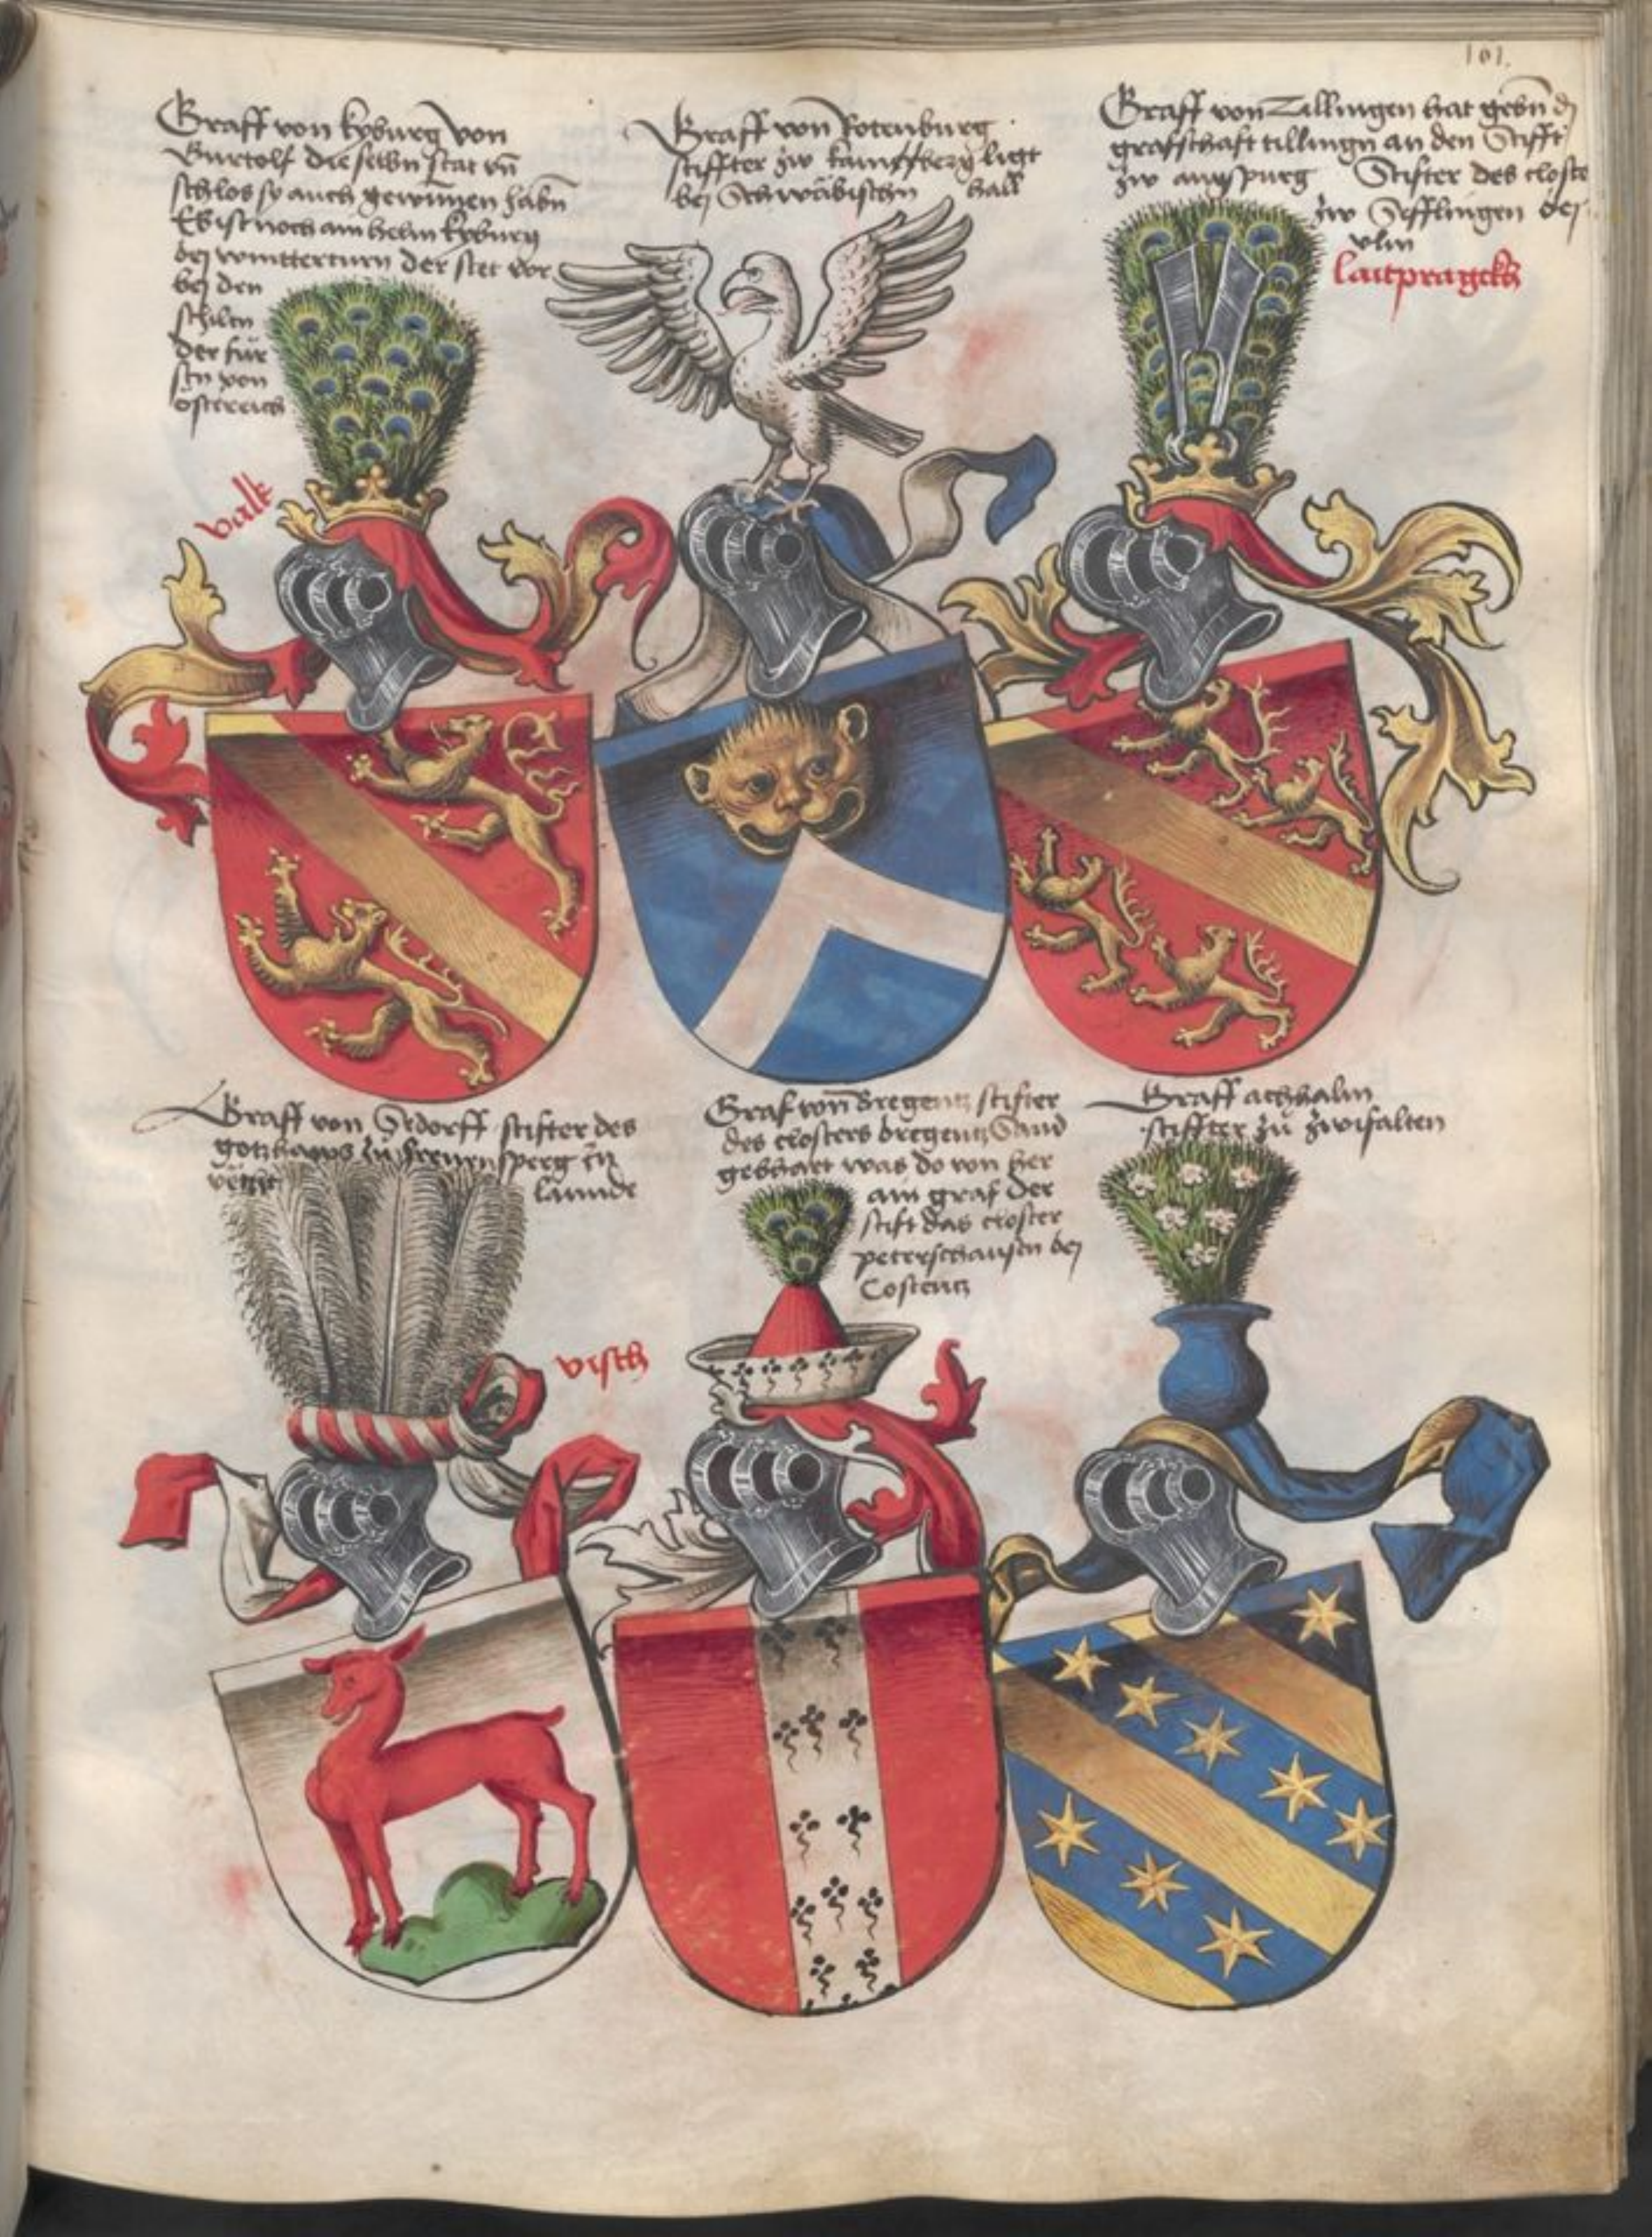 101.
Graff von kyburg von
Burtolf die selbn stat vn̄
schlos sy auch gewunnen habn̄
Es ist noch ain helm kyburg
bej wintterturn der stet vor
bej den
schilten
der für
stn von
östereich
valk
Graff von Rotenburg
stiffter zw kamffberg ligt
bej Schwäbischn hall
Graff von Tillingen hat gebn̄ dj
grafschaft tillingn an den Stifft
zw augspurg Stifter des closte
zw Sefflingen bej
vlm
laitpragckh
Graff von Vrdorff stifter des
gotzhaws zu
launde
visch
Graf von Bregentz stifter
des closters bregentz Sand
gebhart was do von her
ain graf der
stift das closter
peterschausen bej
Costentz
Graff achhalm
stiffter zu zwifalten